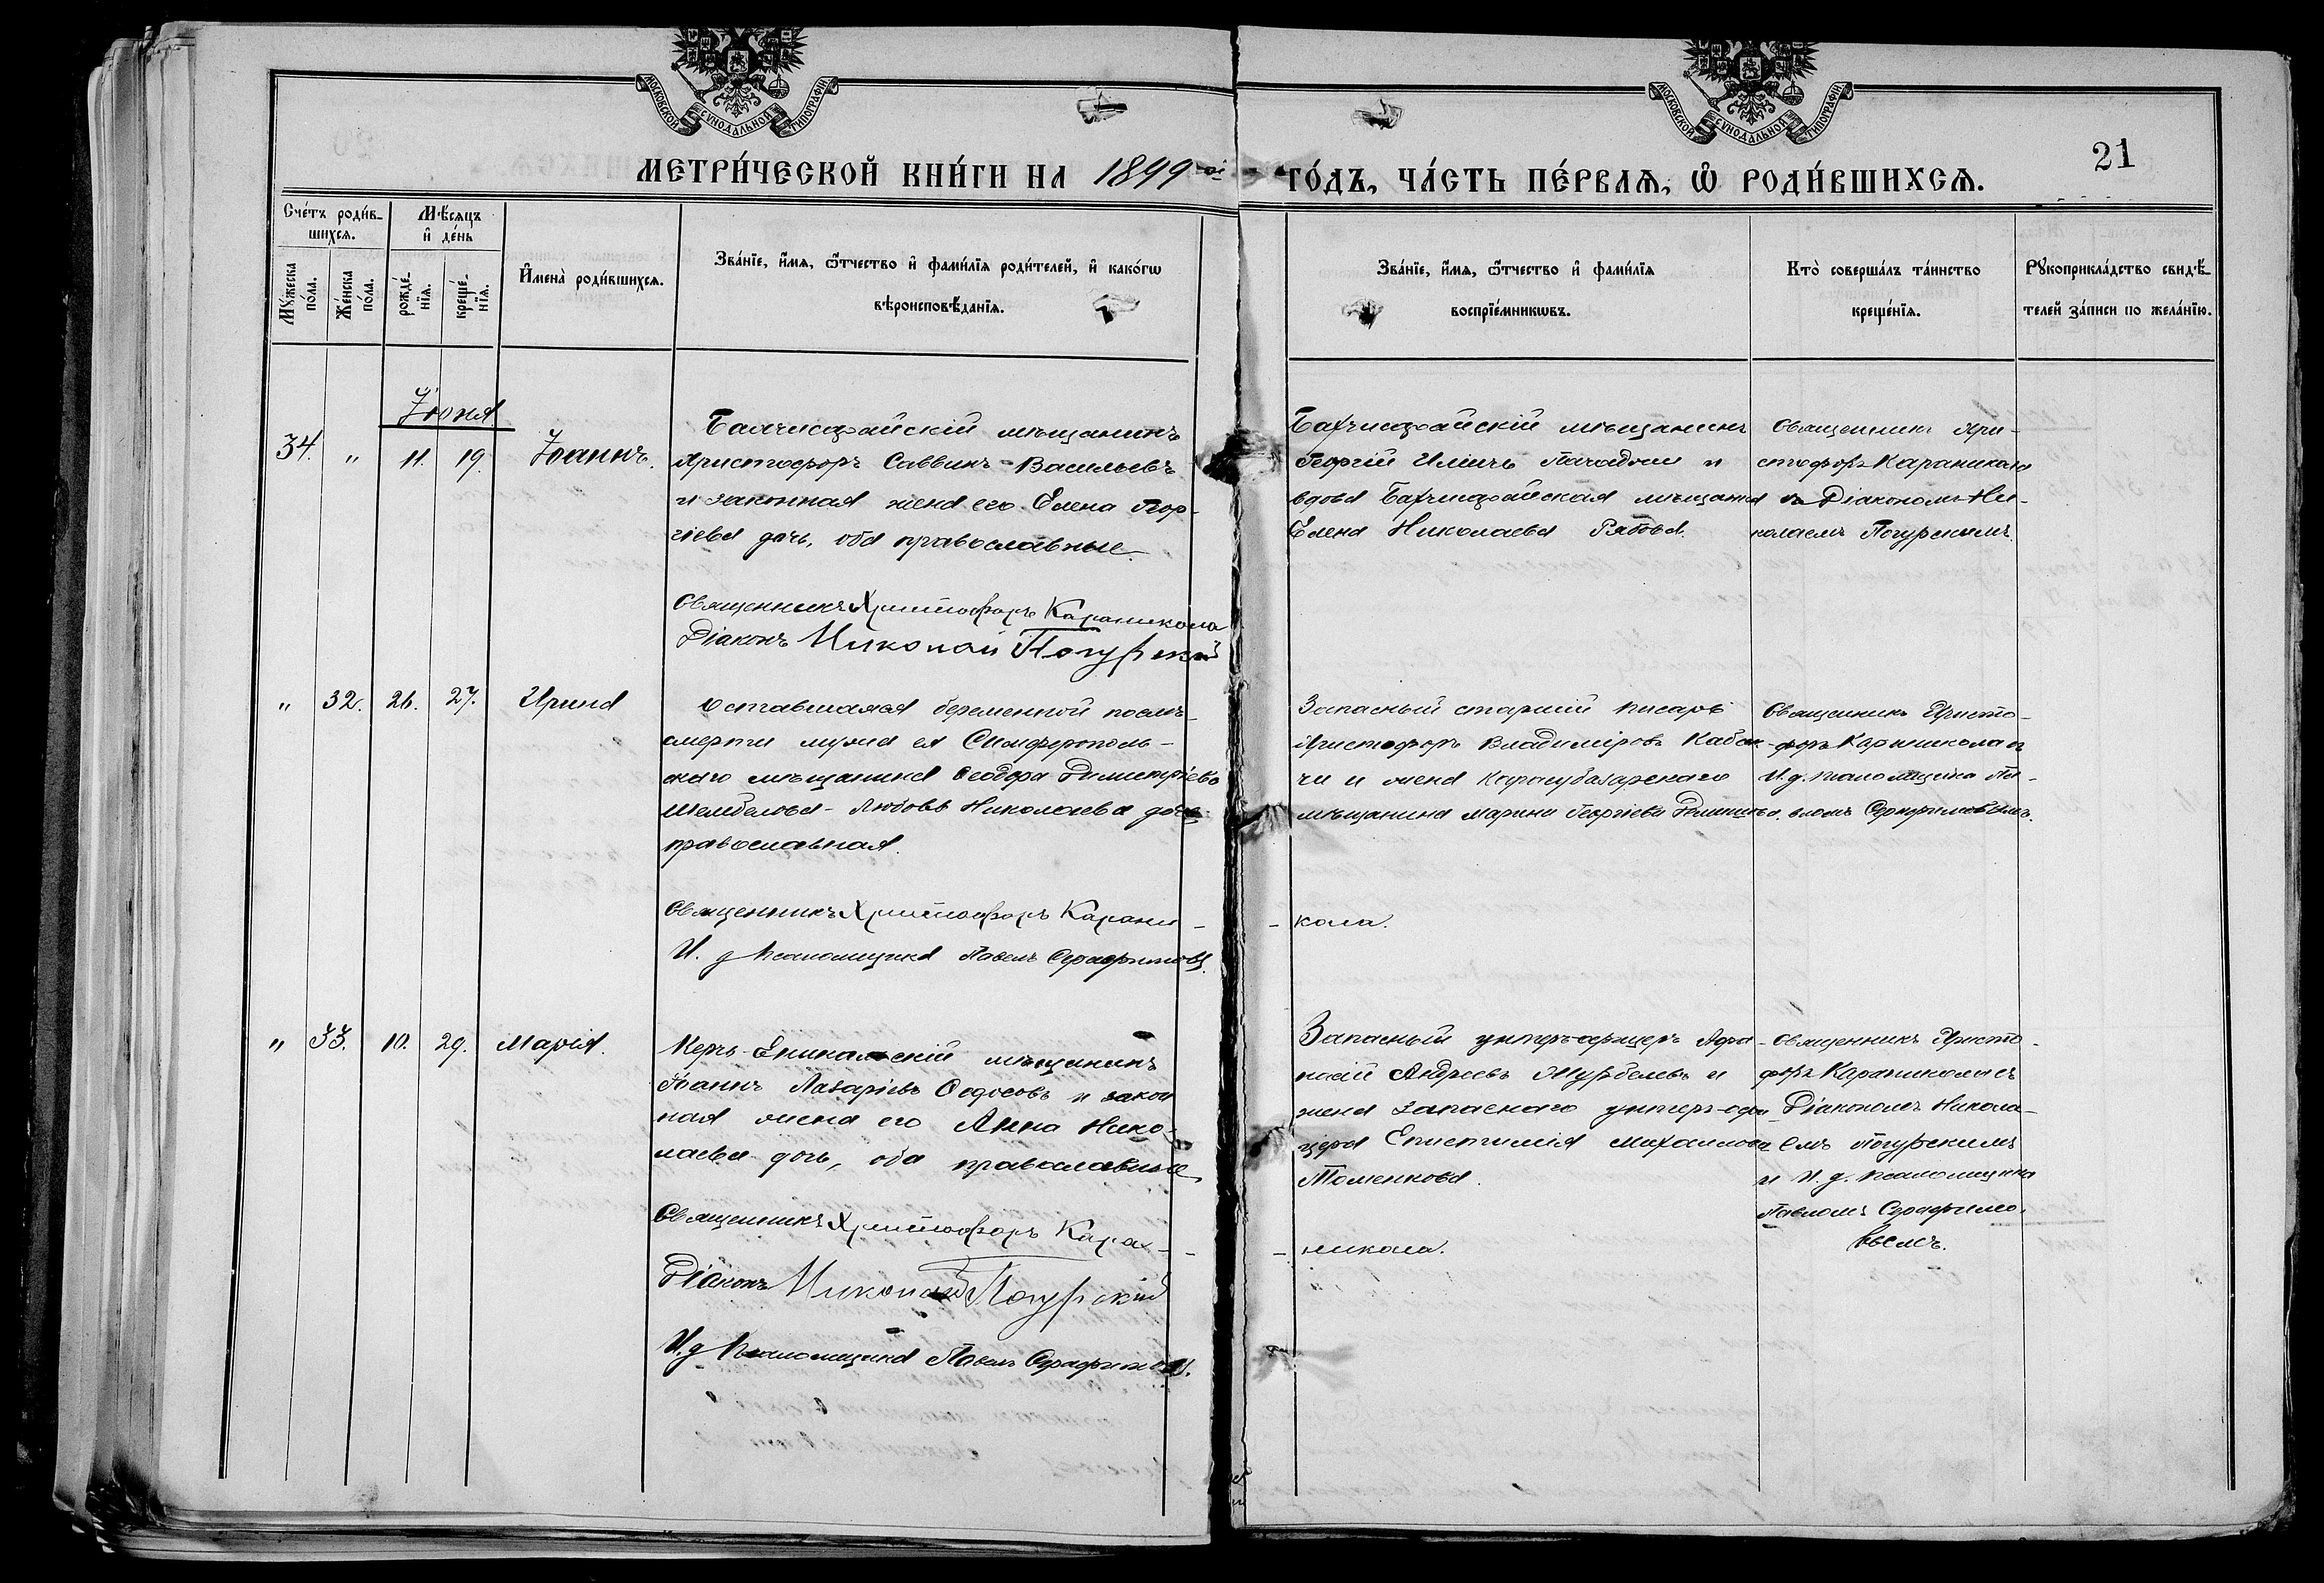 МОСКОВСКОЙ СѴНОДАЛЬНОЙ ТИПОГРАФІИ
МОСКОВСКОЙ СѴНОДАЛЬНОЙ ТИПОГРАФІИ
21
МЕТРИ́ЧЕСКОЙ КНИ́ГИ НА 1899 ГО́ДЪ, ЧА́СТЬ ПЕ́РВАѦ, Ѡ҆ РОДИ́ВШИХСѦ.
Сче́тъ роди́в-
шихсѧ.
Мѣ́сѧцъ
и҆ де́нь
Мꙋ́жеска
по́ла.
Же́нска
по́ла.
рожде́-
нїѧ.
креще́-
нїѧ.
И҆мена̀ роди́вшихсѧ.
Зва́нїе, и҆́мѧ, ѻ҆́тчество и҆ фами́лїѧ роди́телей, и҆ како́гѡ
вѣроисповѣ́данїѧ.
Зва́нїе, и҆́мѧ, ѻ҆́тчество и҆ фами́лїѧ
воспрїе́мникѡвъ.
Кто̀ соверша́лъ та́инство
креще́нїѧ.
Рꙋкоприкла́дство свидѣ́-
телей за́писи по жела́нїю.
Іюня
34. " 11. 19. Іоаннъ.
Бахчисарайскій мѣщанинъ
Христофоръ Саввинъ Васильевъ
и законная жена его Елена Геор-
гіева дочь, оба православные
Священникъ Христофоръ Караникола
Діаконъ Николай Погурскій
Бахчисарайскій мѣщанинъ
Георгій Ильичъ и
вдова Бахчисарайская мѣщанка
Елена Николаева Рябова.
Священникъ Хри-
стофоръ Караникола
съ Діакономъ Ни-
колаемъ Погурскимъ.
" 32. 26. 27. Ирина
Оставшаяся беременной послѣ
смерти мужа ея Симферополь-
скаго мѣщанина Ѳеодора Димитріева
Шембелова - Любовь Николаева дочь
православная.
Священникъ Христофоръ Карани-
-кола.
И. д. псаломщика Павелъ Серафимовъ.
Запасный старшій писарь
Христофоръ Владиміровъ Кабак-
чи и жена Карасубазарскаго
мѣщанина Марина Георгіева
Священникъ Христо-
форъ Караникола съ
И. д. псаломщика Па-
вломъ Серафимовымъ.
" 33. 10. 29. Марія.
Керчь-Еникальскій мѣщанинъ
Іоаннъ Лазаріевъ Ѳедосовъ и закон
ная жена его Анна Нико-
лаева дочь, оба православные
Священникъ Христофоръ Кара-
-никола.
Діаконъ Николай Погурскій
И. д. Псаломщика Павелъ Серафимовъ.
Запасный унтеръ-офицеръ Афа-
насій Андреевъ и
жена запаснаго унтеръ-офи
цера Епистимія Михаилова
Томенкова.
Священникъ Христо-
форъ Караникола съ
Діакономъ Никола-
емъ Погурскимъ
и И. д. псаломщика
Павломъ Серафимо-
вымъ.